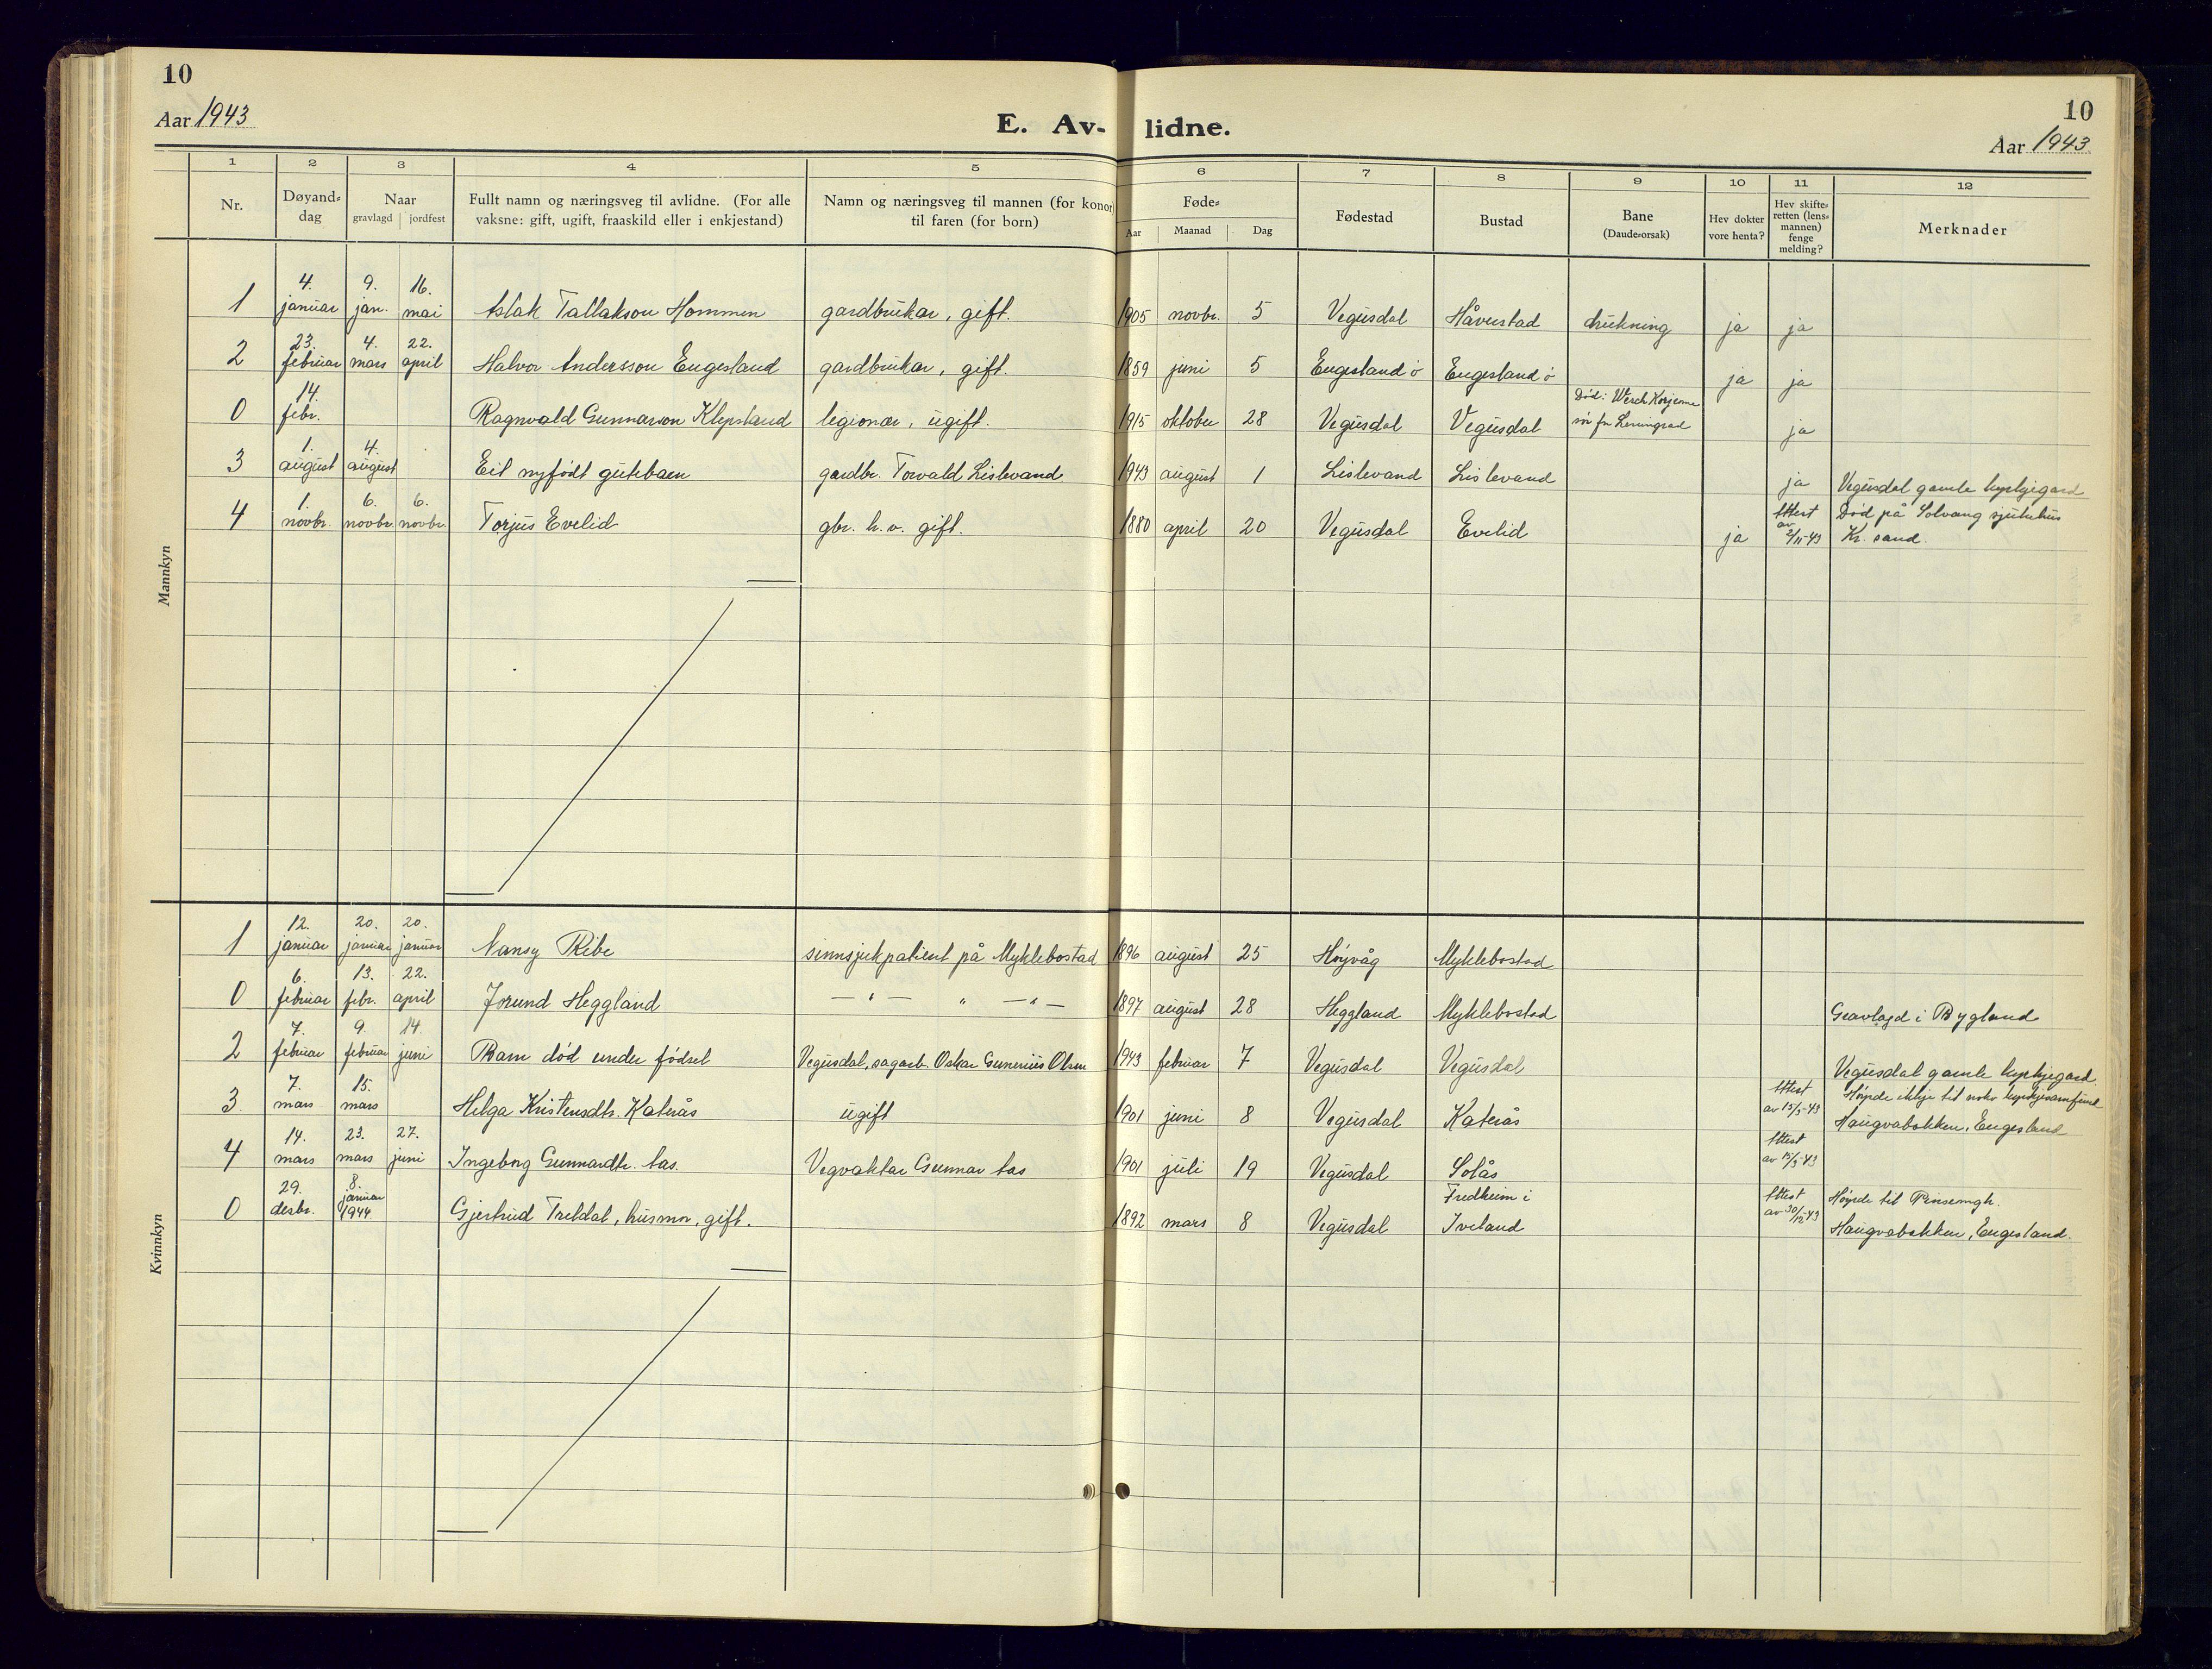 10
10
Aar 1943
E. Av- lidne.
Aar 1943
1 2 3 4 5 6 7 8 9 10 11 12
Nr.
Døyand-dag
Naar
gravlagd jordfest
Fullt namn og næringsveg til avlidne. (For alle
vaksne: gift, ugift, fraaskild eller i enkjestand)
Namn og næringsveg til mannen (for konor)
til faren (for born)
Føde-
Aar Maanad Dag
Fødestad
Bustad
Bane
(Daude-orsak)
Hev dokter
vore henta?
Hev skifte-
retten (lens-
mannen)
fenge
melding?
Merknader
Mannkyn
1 4. januar 9. jan. 16. mai Aslak Tallakson Hommen gardbrukar, gift. 1905 novbr. 5 Vegusdal Håverstad drukning ja ja
2 23. februar 4. mars 22. april Halvor Andersson Engesland gardbrukar, gift. 1859 juni 5 Engesland ø Engesland ø ja ja
0 14. febr. Ragnvald Gunnarson Klepsland legionær, ugift. 1915 oktober 28 Vegusdal Vegusdal Død: sør for Leningrad ja
3 1. august 4. august Eit nyfødt gutebarn gardbr. Torvald Lislevand 1943 august 1 Lislevand Lislevand ja Vegusdal gamle kyrkjegard
4 1. novbr. 6. novbr. 6. novbr. Torjus Evelid gbr. h.v. gift. 1880 april 20 Vegusdal Evelid ja Attest av 2/11-43 Død på Solvang sjukehus
Kr. sand.
Kvinnkyn
1 12. januar 20. januar 20. januar Nansy Ribe sinnsjukpatient på Myklebostad 1896 august 25 Høyvåg Myklebostad
0 6. februar 13. febr. 22. april Jorund Heggland — " — " — " — 1897 august 28 Heggland Myklebostad Gravlagd i Bygland
2 7. februar 9. februar 14. juni Barn død under fødsel Vegusdal, sagarb. Oskar Gunerius Olsen 1943 februar 7 Vegusdal Vegusdal Vegusdal gamle kyrkjegard.
3. 7. mars 15. mars Helga Kristensdtr. Katerås ugift 1901 juni 8 Vegusdal Katerås Attest av 15/3-43 Høyrde ikkje til noko kyrkjesamfund
Haugvabakken, Engesland
4 14. mars 23. mars 27. juni Ingeborg Gunnardtr. Aas. Vegvaktar Gunnar Aas 1901 juli 19 Vegusdal Solås Attest av 15/3-43
0 29. desbr. 8. januar 1944 Gjertrud Treldal, husmor, gift. 1892 mars 8 Vegusdal Fredheim i
Iveland Attest av 30/12-43 Høyrde til Pinsemgh.
Haugvabakken, Engesland.